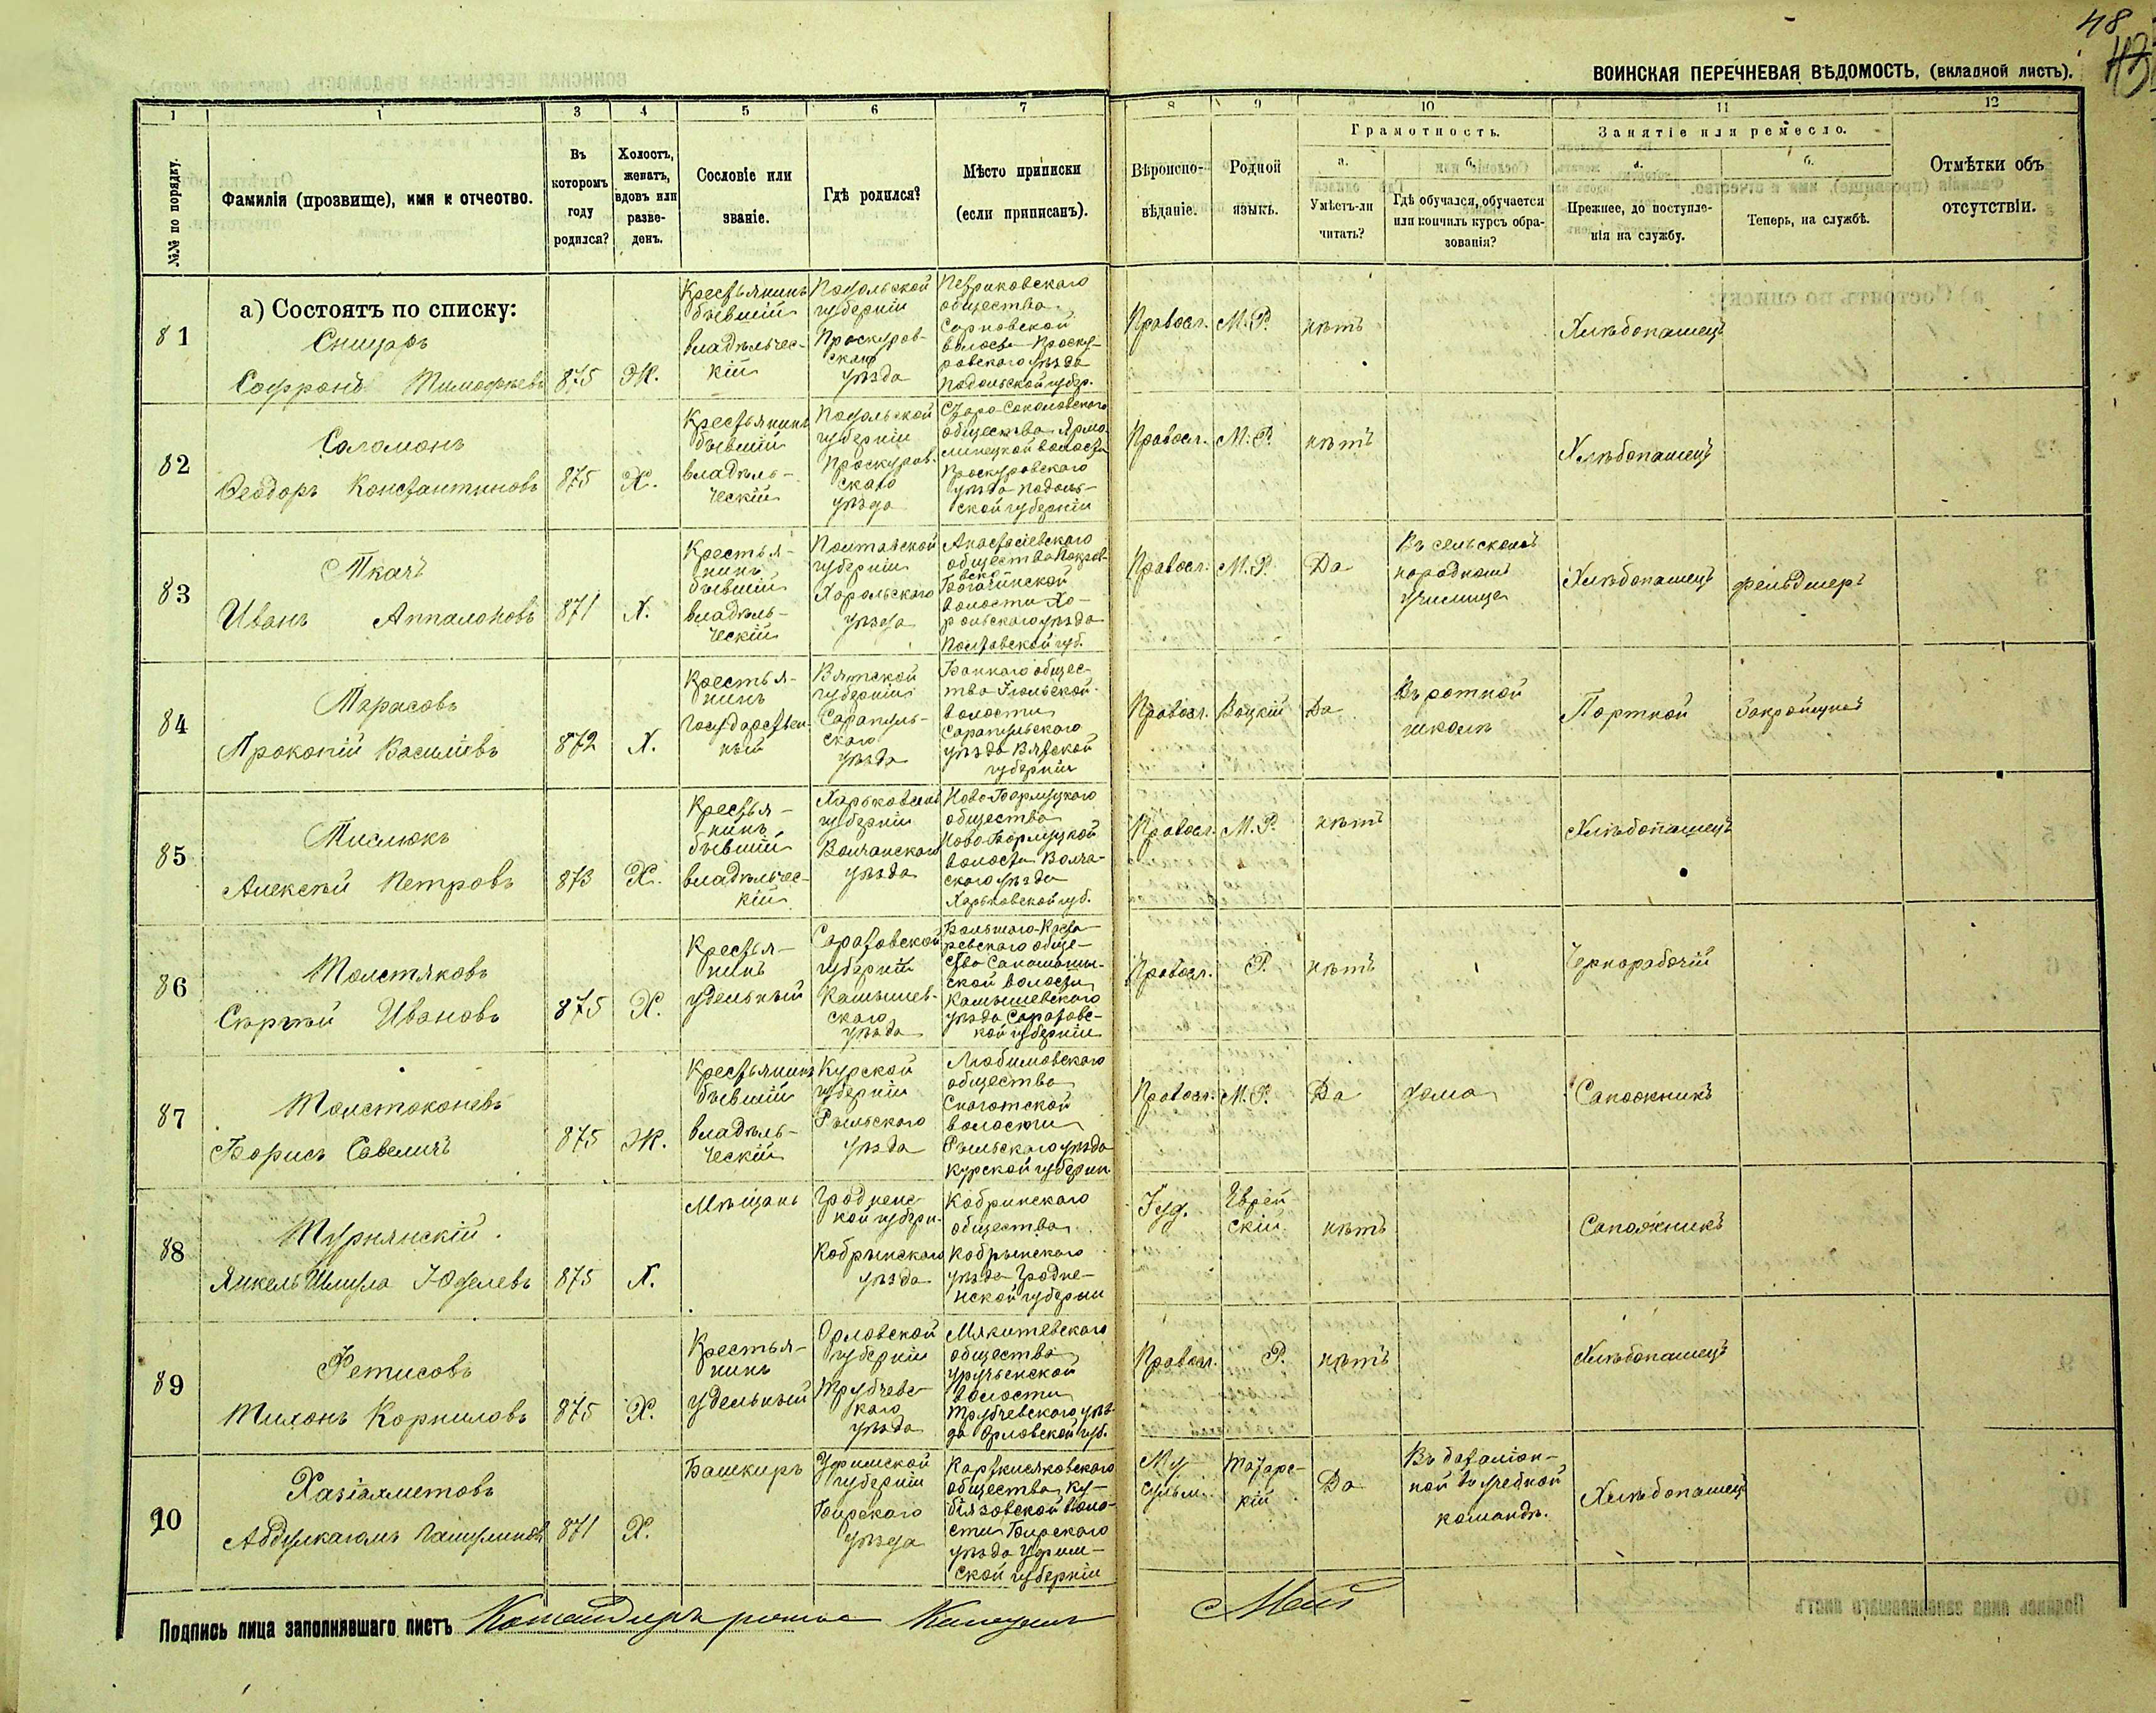 48
43
ВОИНСКАЯ ПЕРЕЧНЕВАЯ ВѢДОМОСТЬ, (вкладной листъ).
1
1
3
4
5
6
7
8
9
10
11
12
№№ по порядку.
Фамилія (прозвище), имя и отчество.
Въ
которомъ
году
родился?
Холостъ,
женатъ,
вдовъ или
разве-
денъ.
Сословіе или
званіе.
Гдѣ родился?
Мѣсто приписки
(если приписанъ).
Вѣроиспо-
вѣданіе.
Родной
языкъ.
Грамотность.
а.
Умѣетъ-ли
читать?
б.
Гдѣ обучался, обучается
или кончилъ курсъ обра-
зованія?
Занятіе или ремесло.
а.
Прежнее, до поступле-
нія на службу.
б.
Теперь, на службѣ.
Отмѣтки объ
отсутствіи.
а) Состоятъ по списку:
81
Снищарь
Софронъ Тимофѣевъ
875
Ж.
Крестьянинъ
бывшій
владѣльчес-
кій
Подольской
губерніи
Проскуров-
скаго
уѣзда
Петриковскаго
общества
Сарновской
волости Проску-
ровскаго уѣзда
Подольской губер.
Правосл.
М. Р.
нѣтъ
Хлѣбопашецъ
82
Саломонъ
Ѳеодоръ Константиновъ
875
Х.
Крестьянинъ
бывшій
владѣль-
ческій
Подольской
губерніи
Проскуров-
скаго
уѣзда
Старо-Соколовскаго
общества Ярмо-
линецкой волости
Проскуровскаго
уѣзда Подоль-
ской губерніи
Правосл.
М. Р.
нѣтъ
Хлѣбопашецъ
83
Ткачъ
Иванъ Аппалоновъ
871
Х.
Крестья-
нинъ
бывшій
владѣль-
ческій
Полтавской
губерніи
Хорольскаго
уѣзда
Анастасіевскаго
общества Покров-
ско
Богачинской
волости Хо-
рольскаго уѣзда
Полтавской губ.
Правосл.
М. Р.
Да
Въ сельскомъ
народномъ
училище
Хлѣбопашецъ
фельдшеръ
84
Тарасовъ
Прокопій Василіевъ
872
Х.
Крестья-
нинъ
государствен-
ный
Вятской
губерніи
Сарапуль-
скаго
уѣзда
общес-
тва
волости
Сарапульскаго
уѣзда Вятской
губерніи
Правосл.
Воцкій
Да
Въ ротной
школѣ
Портной
Закройщикъ
85
Тислюкъ
Алексѣй Петровъ
873
Х.
Крестья-
нинъ
бывшій
владѣльчес-
кій
Харьковской
губерніи
Волчанскаго
уѣзда
Ново-Бурлуцкаго
общества
Ново-Бурлуцкой
волости Волча-
скаго уѣзда
Харьковской губ.
Правосл.
М. Р.
нѣтъ
Хлѣбопашецъ
86
Толстяковъ
Сергѣй Ивановъ
875
Х.
Крестья-
нинъ
удельный
Саратовской
губерніи
Камышев-
скаго
уѣзда
обще-
ства
ской волости
Камышевскаго
уѣзда Саратовс-
кой губерніи
Правосл.
Р.
нѣтъ
Чернорабочій
87
Толстоконевъ
Борисъ Савеличъ
875
Ж.
Крестьянинъ
бывшій
владѣль-
ческій
Курской
губерніи
Рыльскаго
уѣзда
Любимовскаго
общества
Снаготской
волости
Рыльскаго уѣзда
Курской губерніи
Правосл.
М. Р.
Да
дома
Сапожникъ
88
Турнянскій.
Янкель Шмуло Юделевъ
875
Х.
Мѣщанъ
Гродненс-
кой губерн.
Кобрынскаго
уѣзда
Кобринскаго
общества
Кобрынскаго
уѣзда Гродне-
нской губерніи
Іуд.
Еврей-
скій
нѣтъ
Сапожникъ
89
Фетисовъ
Тихонъ Корниловъ
875
Х.
Крестья-
нинъ
удельный
Орловской
губерніи
Трубчевс-
каго
уѣзда
Мякотевскаго
общества
Уручьенской
волости
Трубчевскаго уѣз-
да Орловской губ.
Правосл.
Р.
нѣтъ
Хлѣбопашецъ
90
Хазіахметовъ
871
Х.
Башкиръ
Уфимской
губерніи
Бирскаго
уѣзда
Карткисяковскаго
общества Ку-
біязовской воло-
сти Бирскаго
уѣзда Уфим-
ской губерніи
Му-
сульм.
Татарс-
кій
Да
Въ баталіон-
ной въ учебной
командѣ.
Хлѣбопашецъ
Подпись лица заполнявшаго листъ Командиръ роты Капитанъ